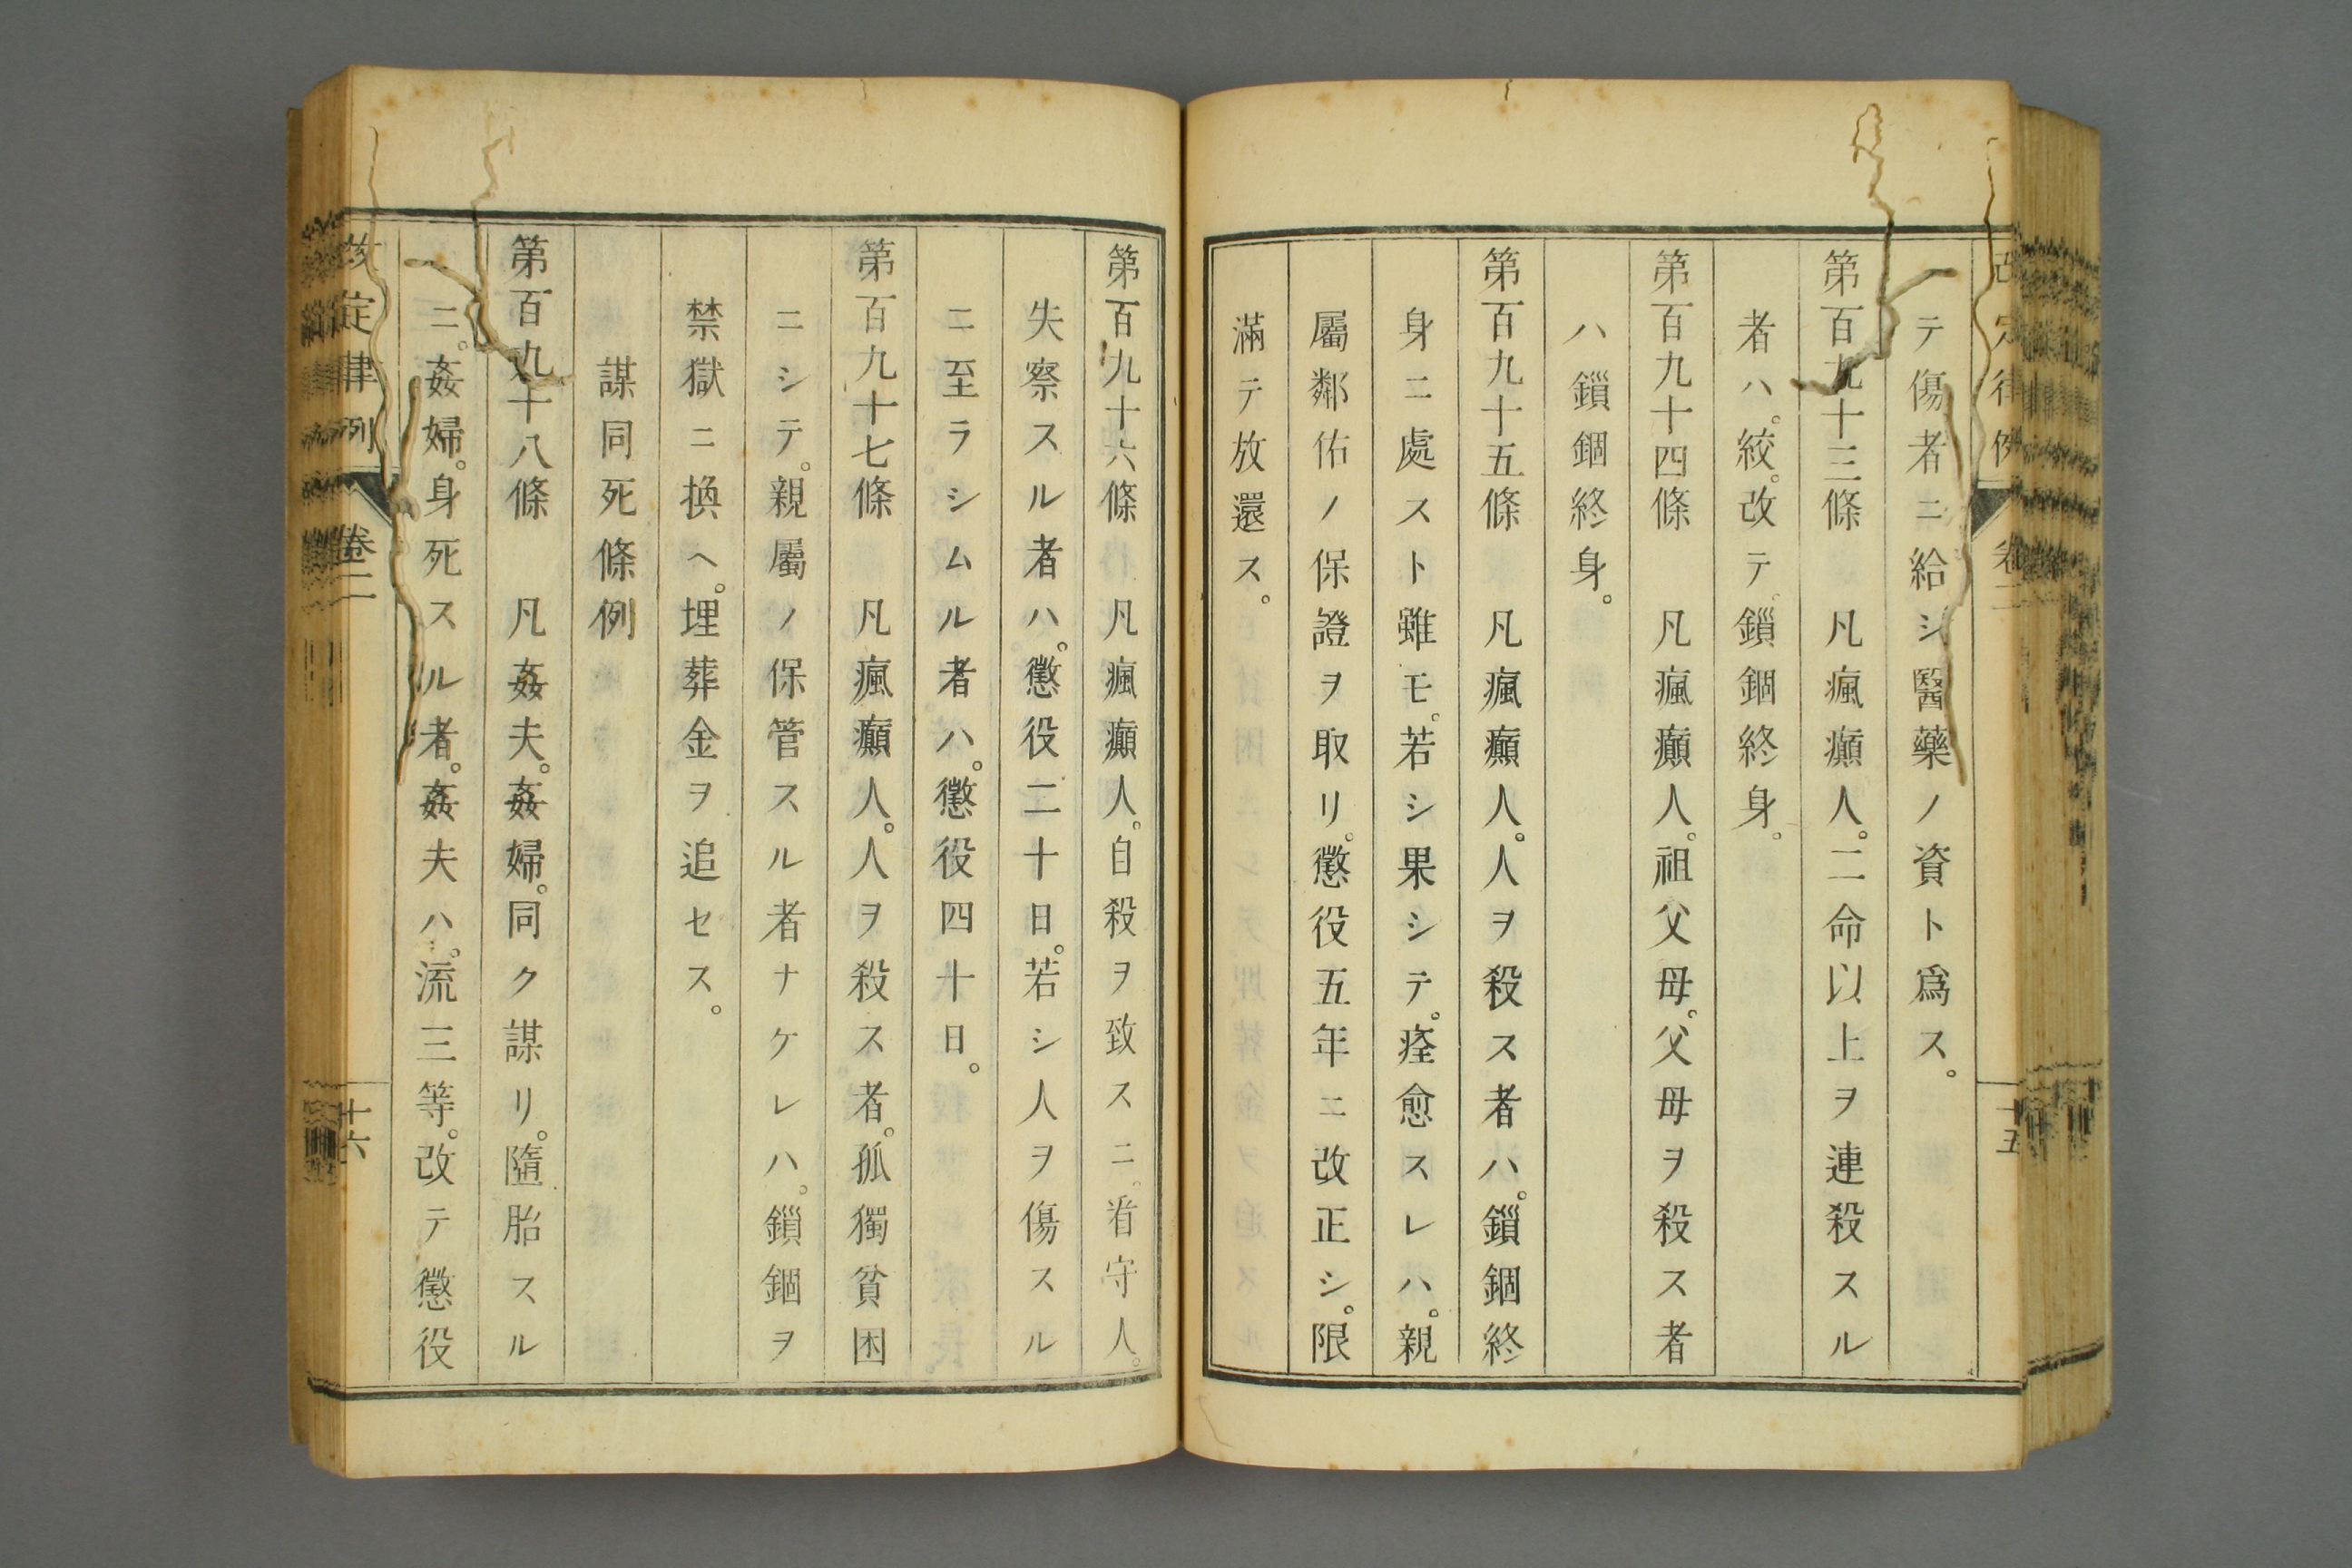 テ傷者ニ給シ醫藥ノ資ト爲ス。
第百九十三條　凡瘋癲人。二命以上ヲ連殺スル
者ハ。絞。改テ。鎖錮終身。
第百九十四條　凡瘋癲人。祖父母。父母ヲ殺ス者
ハ鎖錮終身。
第百九十五條　凡瘋癲人。人ヲ殺ス者ハ。鎖錮終
身ニ處スト雖モ。若シ果シテ。痊愈スレハ。親
屬鄰佑ノ保證ヲ取リ。懲役五年ニ改正シ。限
滿テ放還ス。
第百九十六條　凡瘋癲人。自殺ヲ致スニ。看守人。
失察スル者ハ。懲役二十日。若シ人ヲ傷スル
ニ至ラシムル者ハ。懲役四十日。
第百九十七條　凡瘋癲人。人ヲ殺ス者。孤獨貧困
ニシテ。親屬ノ保管スル者ナケレハ。鎖錮ヲ
禁獄ニ換ヘ。埋葬金ヲ追セス。
謀同死條例
第百九十八條　凡姦夫。姦婦。同ク謀リ。墮胎スル
ニ。姦婦。身死スル者。姦夫ハ。流三等。改テ懲役
改定律例　卷二　十六